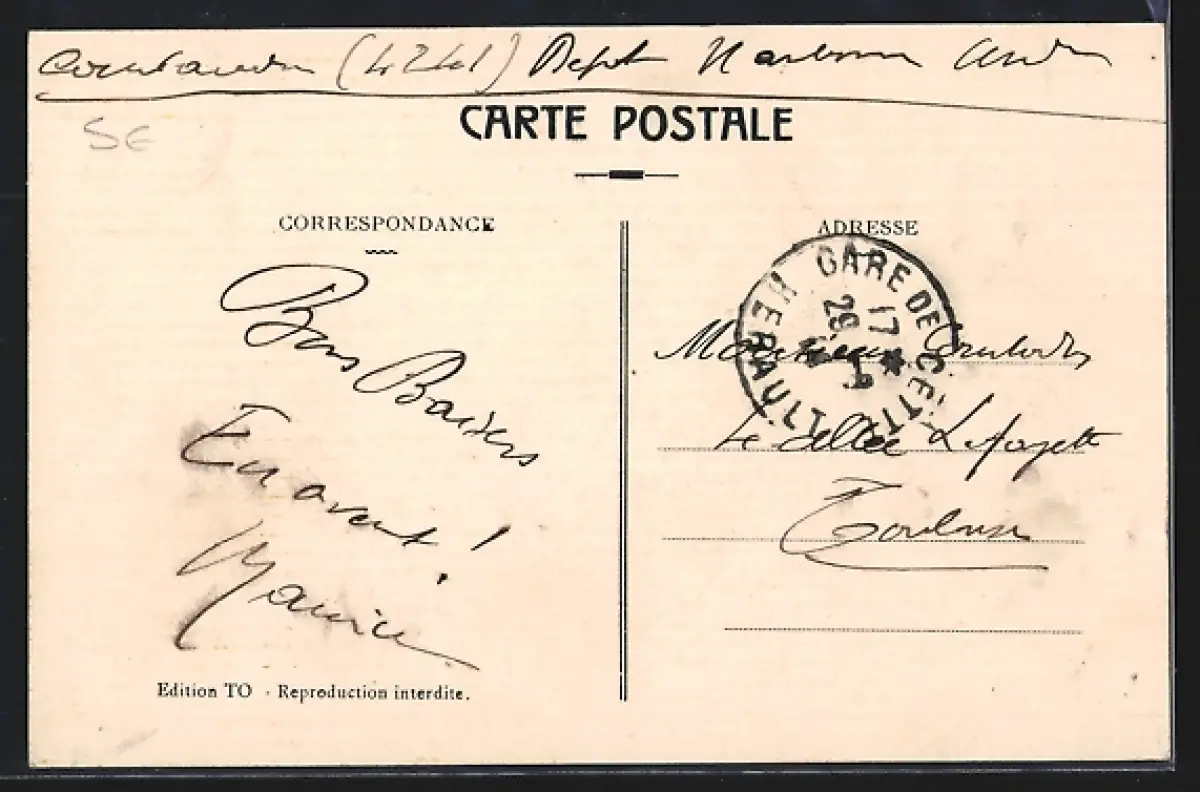 (4241) Dépôt Narbonne Aude
SE
CARTE POSTALE
CORRESPONDANCE
ADRESSE
Bons Baisers
En avant !
Maurice
GARE DE CETTE
17
29
HERAULT
Monsieur
Allée Lafayette
Toulouse
Edition TO - Reproduction interdite.